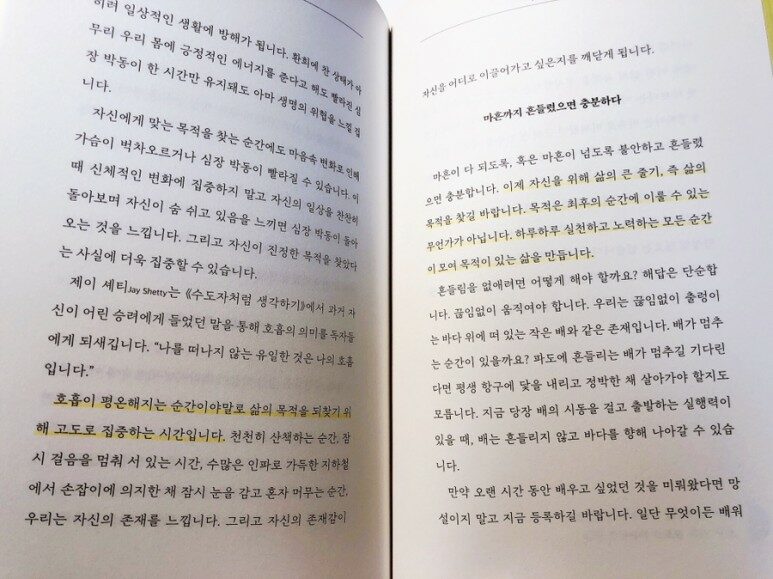 히려 일상적인 생활에 방해가 됩니다. 환희에 찬 상태가 아
무리 우리 몸에 긍정적인 에너지를 준다고 해도 빨라진 심
장 박동이 한 시간만 유지돼도 아마 생명의 위협을 느낄 겁
니다.
자신에게 맞는 목적을 찾는 순간에도 마음속 변화로 인해
가슴이 벅차오르거나 심장 박동이 빨라질 수 있습니다. 이
때 신체적인 변화에 집중하지 말고 자신의 일상을 찬찬히
돌아보며 자신이 숨 쉬고 있음을 느끼면 심장 박동이 돌아
오는 것을 느낍니다. 그리고 자신이 진정한 목적을 찾았다
는 사실에 더욱 집중할 수 있습니다.
제이 셰티Jay Shetty는 《수도자처럼 생각하기》에서 과거 자
신이 어린 승려에게 들었던 말을 통해 호흡의 의미를 독자들
에게 되새깁니다. “나를 떠나지 않는 유일한 것은 나의 호흡
입니다.”
호흡이 평온해지는 순간이야말로 삶의 목적을 되찾기 위
해 고도로 집중하는 시간입니다. 천천히 산책하는 순간, 잠
시 걸음을 멈춰 서 있는 시간, 수많은 인파로 가득한 지하철
에서 손잡이에 의지한 채 잠시 눈을 감고 혼자 머무는 순간,
우리는 자신의 존재를 느낍니다. 그리고 자신의 존재감이
자신을 어디로 이끌어가고 싶은지를 깨닫게 됩니다.
마흔까지 흔들렸으면 충분하다
마흔이 다 되도록, 혹은 마흔이 넘도록 불안하고 흔들렸
으면 충분합니다. 이제 자신을 위해 삶의 큰 줄기, 즉 삶의
목적을 찾길 바랍니다. 목적은 최후의 순간에 이룰 수 있는
무언가가 아닙니다. 하루하루 실천하고 노력하는 모든 순간
이 모여 목적이 있는 삶을 만듭니다.
흔들림을 없애려면 어떻게 해야 할까요? 해답은 단순합
니다. 끊임없이 움직여야 합니다. 우리는 끊임없이 출렁이
는 바다 위에 떠 있는 작은 배와 같은 존재입니다. 배가 멈추
는 순간이 있을까요? 파도에 흔들리는 배가 멈추길 기다린
다면 평생 항구에 닻을 내리고 정박한 채 살아가야 할지도
모릅니다. 지금 당장 배의 시동을 걸고 출발하는 실행력이
있을 때, 배는 흔들리지 않고 바다를 향해 나아갈 수 있습
니다.
만약 오랜 시간 동안 배우고 싶었던 것을 미뤄왔다면 망
설이지 말고 지금 등록하길 바랍니다. 일단 무엇이든 배워